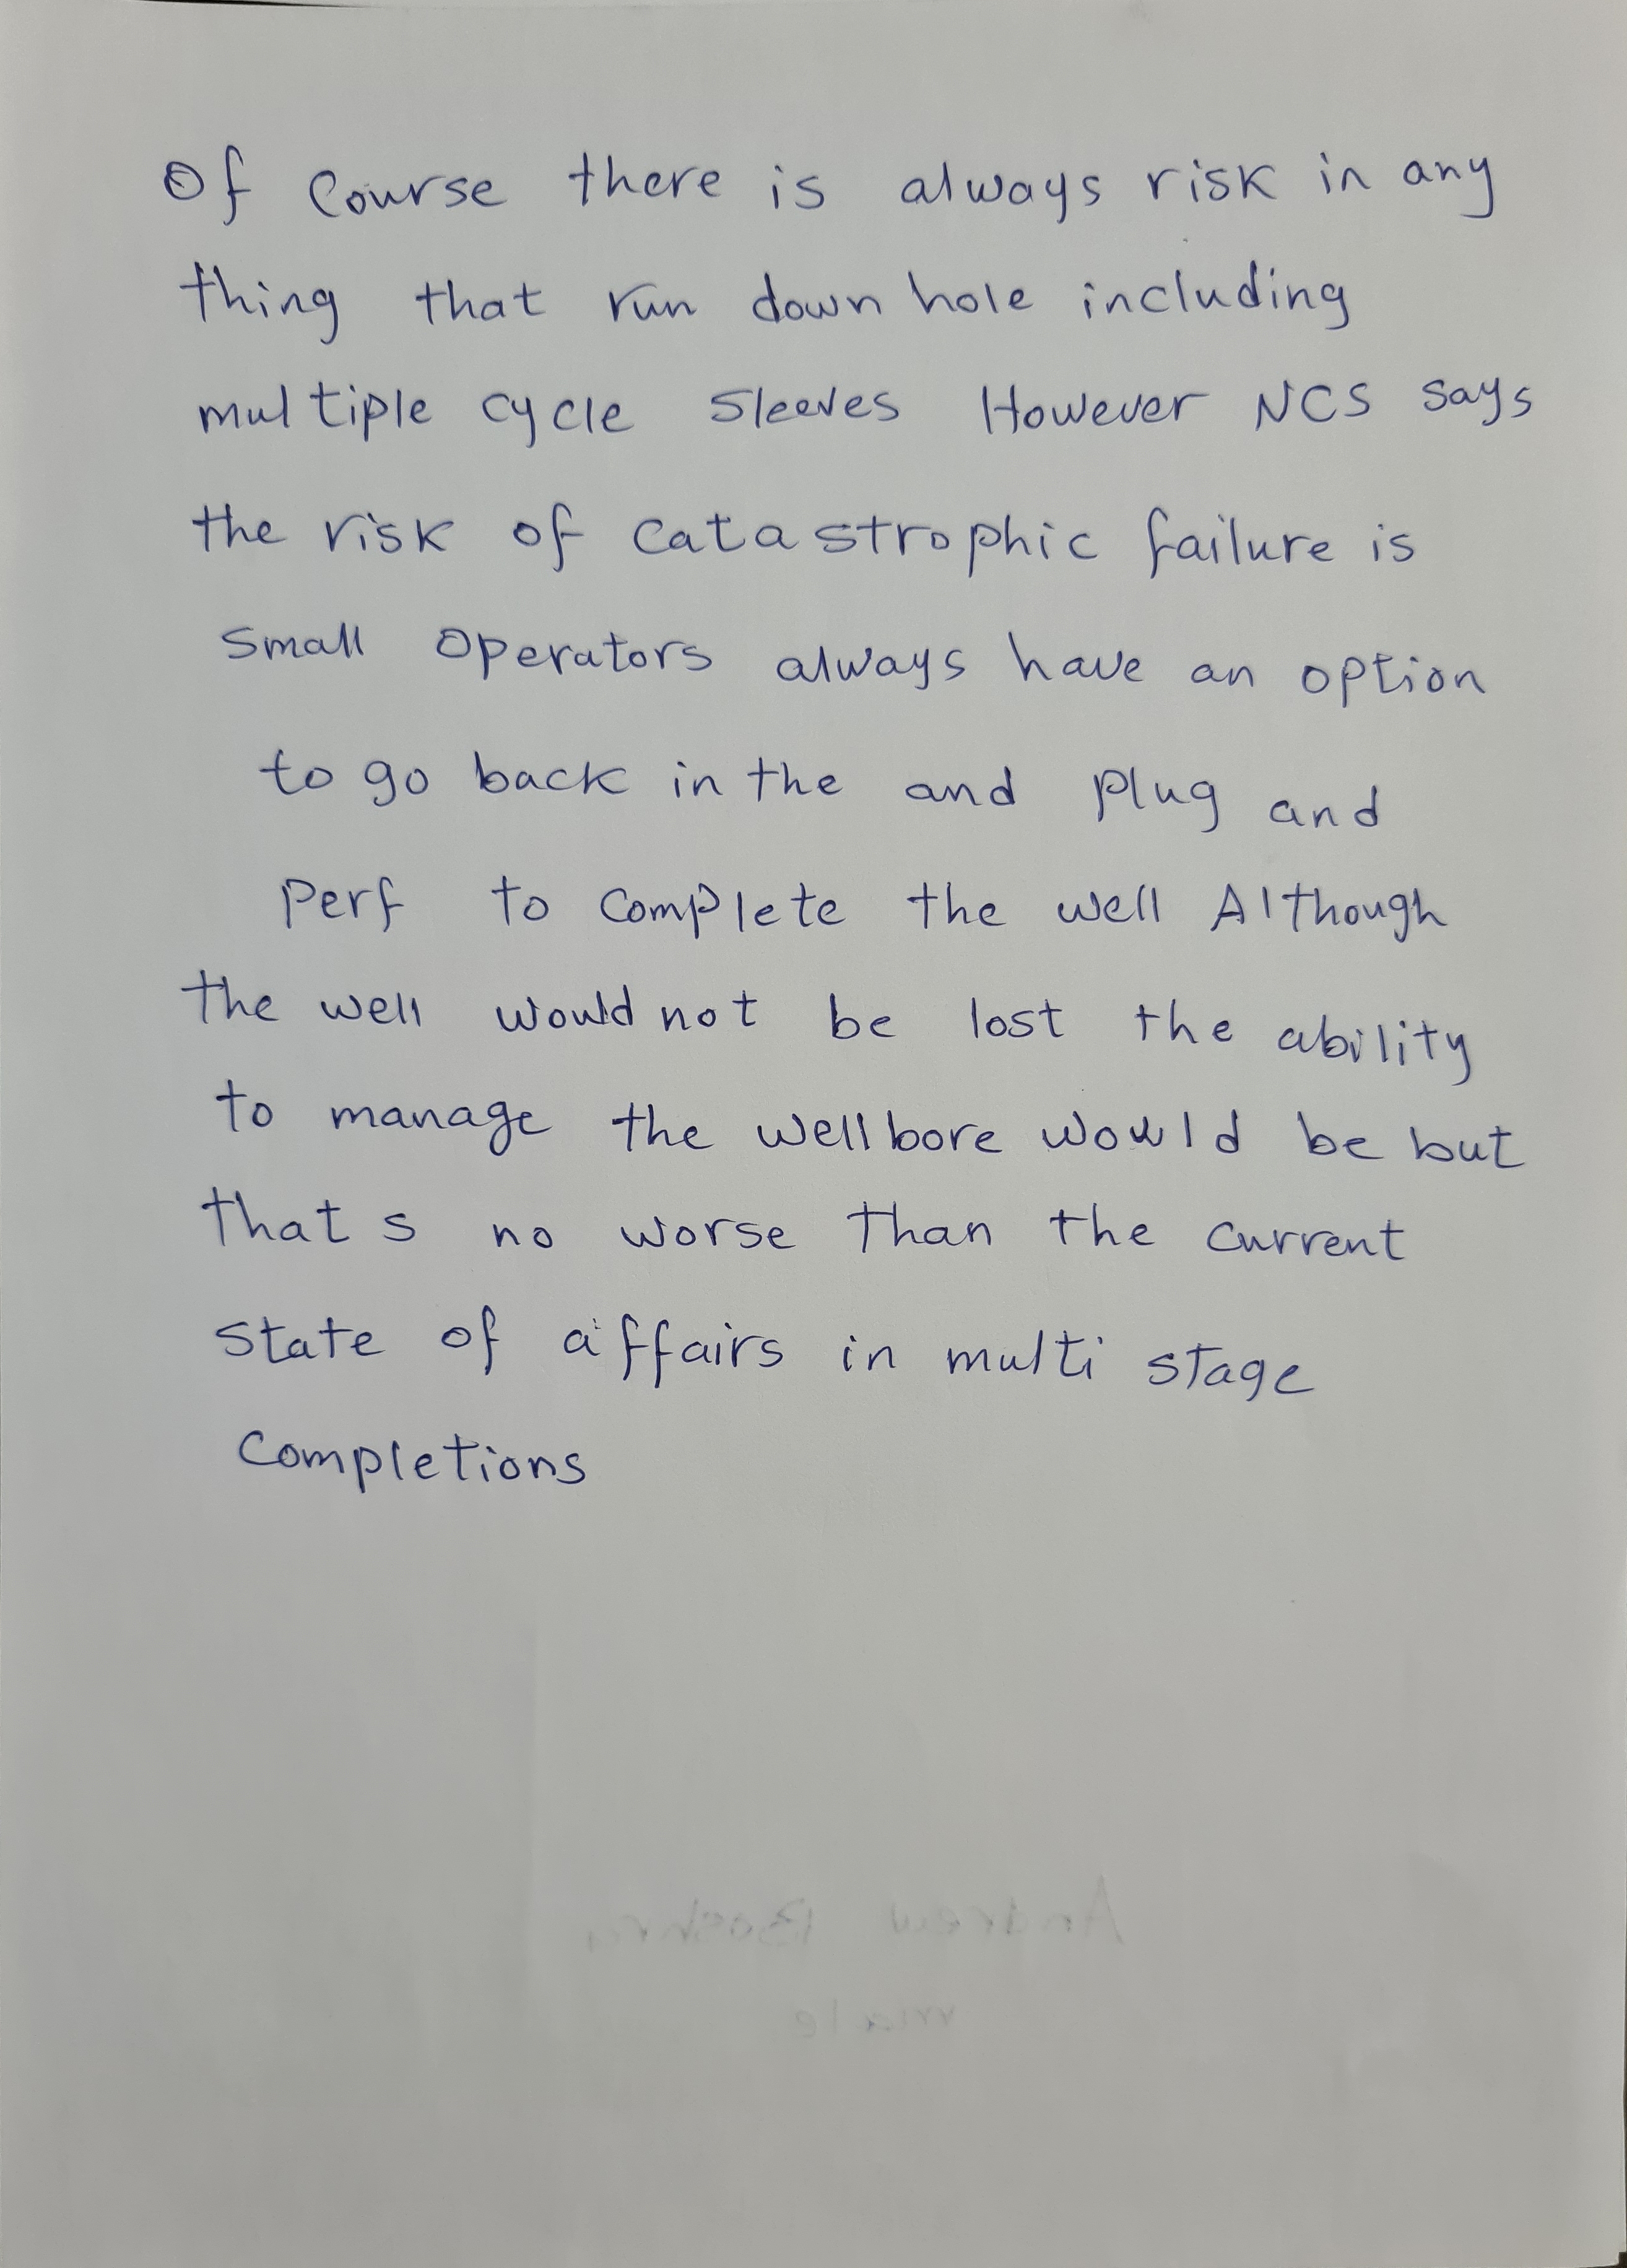 Of Course there is always risk in any
thing that run down hole including
multiple cycle sleeves However NCS says
the risk of catastrophic failure is
small Operators always have an option
to go back in the and plug and
Perf to complete the well Although
the well would not be lost the ability
to manage the wellbore would be but
that s no worse than the current
state of affairs in multi stage
Completions
Andrew
male